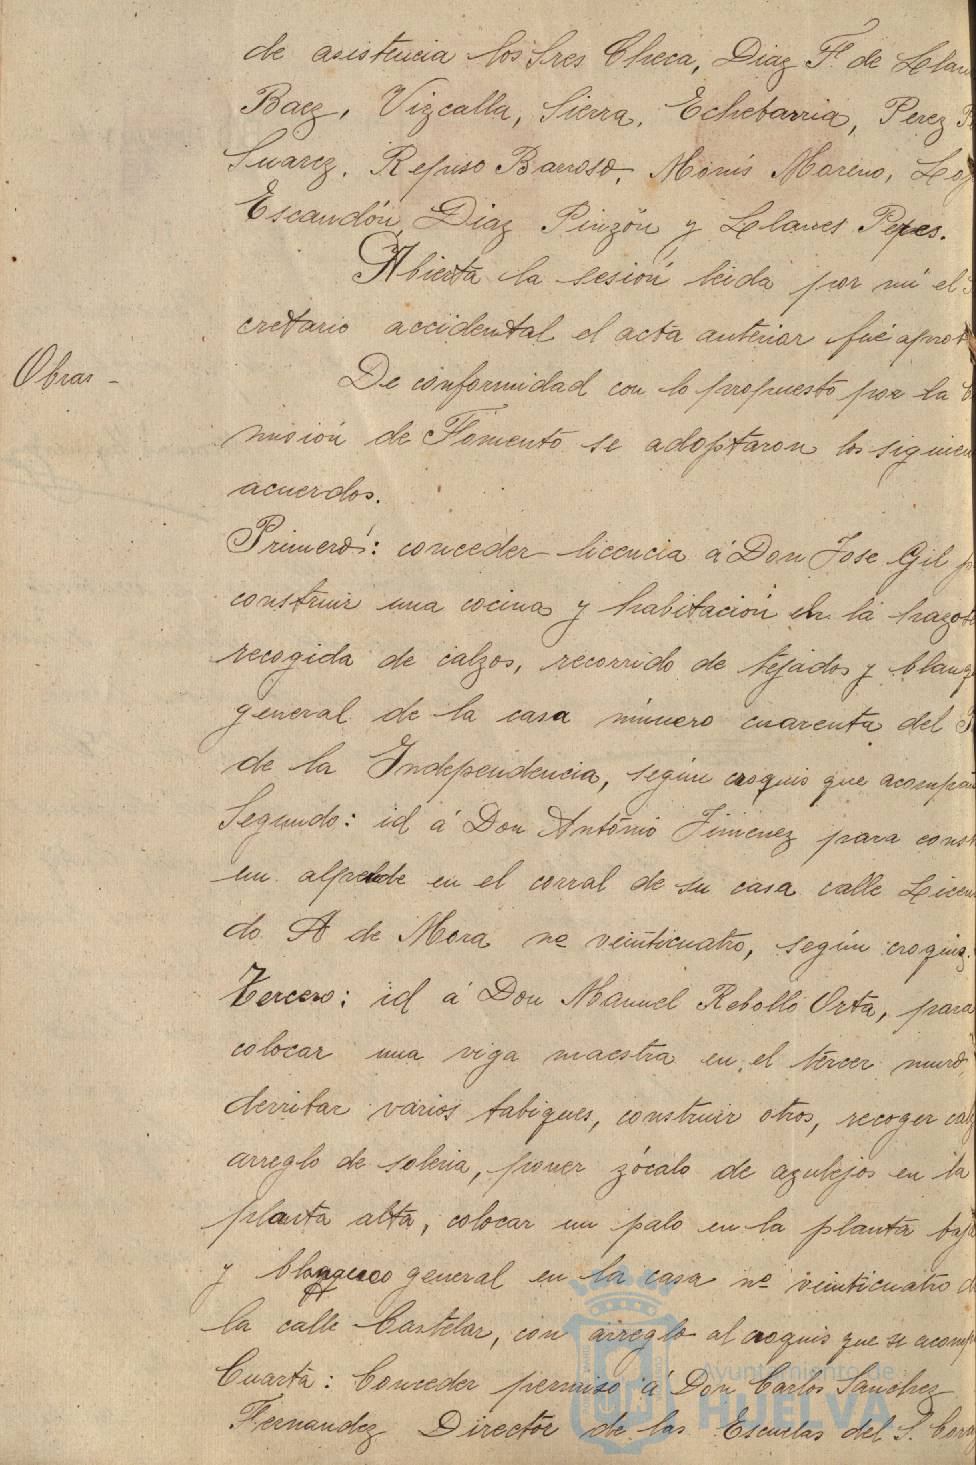 de asistencia los Sres Checa, Diaz F. de Llan
Baez, Vizcalla, Sierra, Echebarria, Perez
Suarez, Repiso Barroso, Monís Moreno, Lop
Escandón, Diaz Pinzón y Llanes Pepes.
Abierta la sesión leida por mi el S
cretario accidental el acta anterior fué aprob
Obras -
De conformidad con lo propuesto por la C
misión de Fomento se adoptaron los siguien
acuerdos.
Primero: conceder licencia á Don Jose Gil p
construir una cocina y habitación en la
recogida de calzos, recorrido de tejados y blanq
general de la casa número cuarenta del P
de la Independencia, según croquis que acompañ
Segundo: id á Don António Jimenez para const
un alpende en el corral de su casa calle Licen
do A de Mora nº veinticuatro, según croquis.
Tercero: id á Don Manuel Rebollo Orta, para
colocar una viga maestra en el tercer muro,
derribar varios tabiques, construir otros, recoger calz
arreglo de soleria, poner zócalo de azulejos en la
planta alta, colocar un palo en la planta baja
y blanqueo general en la casa nº veinticuatro d
la calle Castelar, con arreglo al croquis que se acomp
Cuarta: Conceder permiso á Don Carlos Sanchez
Fernandez Director de las Escuelas del S. Cora
Ayuntamiento de
HUELVA